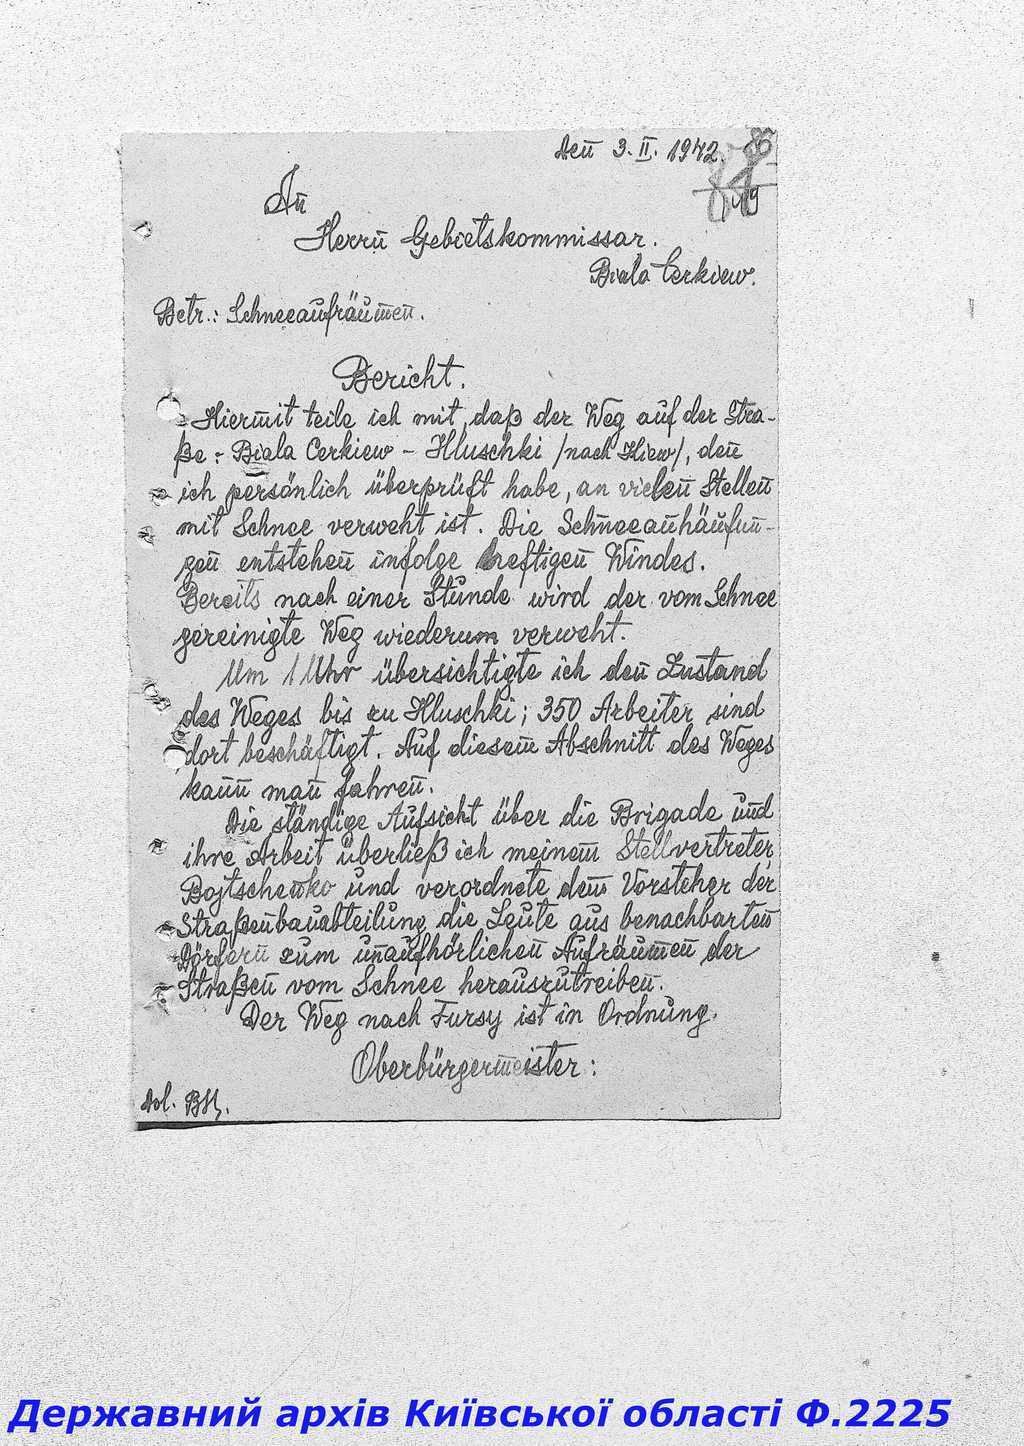 Den 3. II. 1942.
86
An
Herrn Gebietskommissar.
Biala Cerkiew.
Betr.: Schneeaufräumen.
Bericht.
Hiermit teile ich mit, daß der Weg auf der Stra-
ße: Biala Cerkiew - Hluschki /nach Kiew/, den
ich persönlich überprüft habe, an vielen Stellen
mit Schnee verweht ist. Die Schneeanhäufun-
gen entstehen infolge heftigen Windes.
Bereits nach einer Stunde wird der vom Schnee
gereinigte Weg wiederum verweht.
Um 1 Uhr übersichtigte ich den Zustand
des Weges bis zu Hluschki; 350 Arbeiter sind
dort beschäftigt. Auf diesem Abschnitt des Weges
kann man fahren.
Die ständige Aufsicht über die Brigade und
ihre Arbeit überließ ich meinem Stellvertreter
Bojtschenko und verordnete dem Vorsteher der
Straßenbauabteilung die Leute aus benachbarten
Dörfern zum unaufhörlichen Aufräumen der
Straßen vom Schnee herauszutreiben.
Der Weg nach Fursy ist in Ordnung.
Oberbürgermeister:
Dol.
Державний архів Київської області Ф.2225